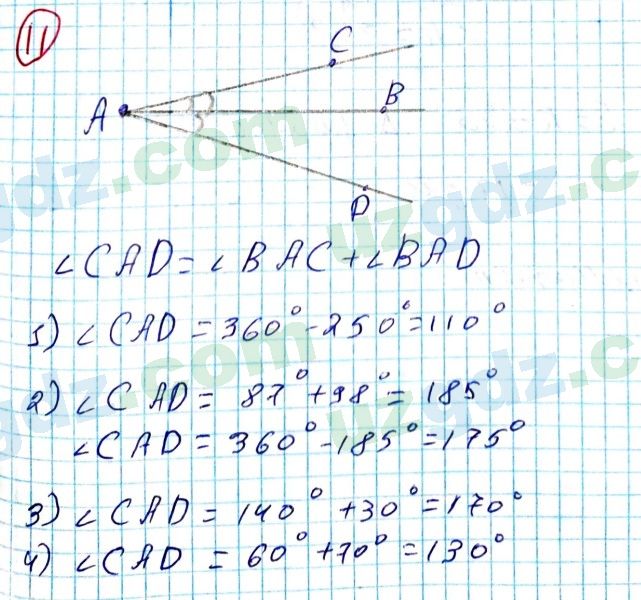 11
C
B
A
D
∠CAD = ∠BAC + ∠BAD
1) ∠CAD = 360° - 250° = 110°
2) ∠CAD = 87° + 98° = 185°
∠CAD = 360° - 185° = 175°
3) ∠CAD = 140° + 30° = 170°
4) ∠CAD = 60° + 70° = 130°
uzgdz.com